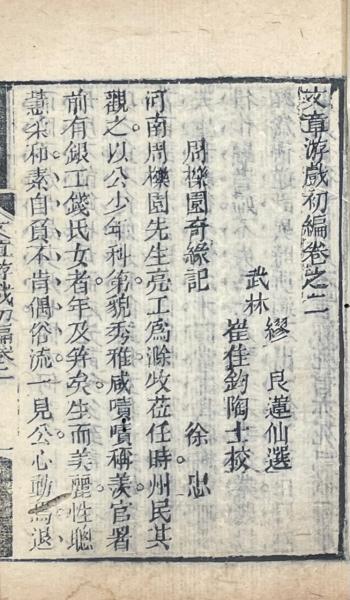 文章游戲初編卷之二
武林
繆艮蓮仙選
崔佳鈞陶士校
周櫟園奇緣記
徐忠
河南周櫟園先生亮工為滁牧莅任時州民共
觀之以公少年科第貌秀雅咸嘖嘖稱羙官署
前有銀工錢氏女者年及笄矣生而美麗性聰
慧柔和素自負不肯偶俗流一見公心動焉退